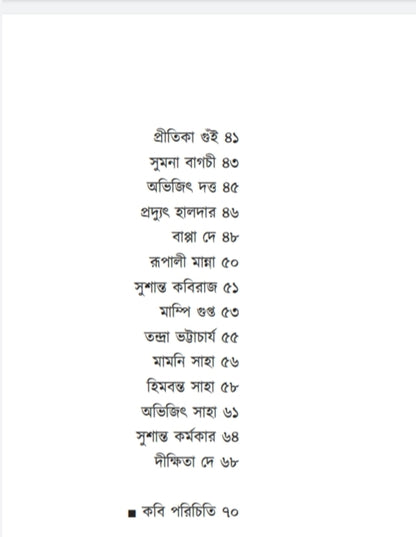 প্রীতিকা গুঁই ৪১
সুমনা বাগচী ৪৩
অভিজিৎ দত্ত ৪৫
প্রদ্যুৎ হালদার ৪৬
বাপ্পা দে ৪৮
রূপালী মান্না ৫০
সুশান্ত কবিরাজ ৫১
মাম্পি গুপ্ত ৫৩
তন্দ্রা ভট্টাচার্য ৫৫
মামনি সাহা ৫৬
হিমবন্ত সাহা ৫৮
অভিজিৎ সাহা ৬১
সুশান্ত কর্মকার ৬৪
দীক্ষিতা দে ৬৮
■ কবি পরিচিতি ৭০